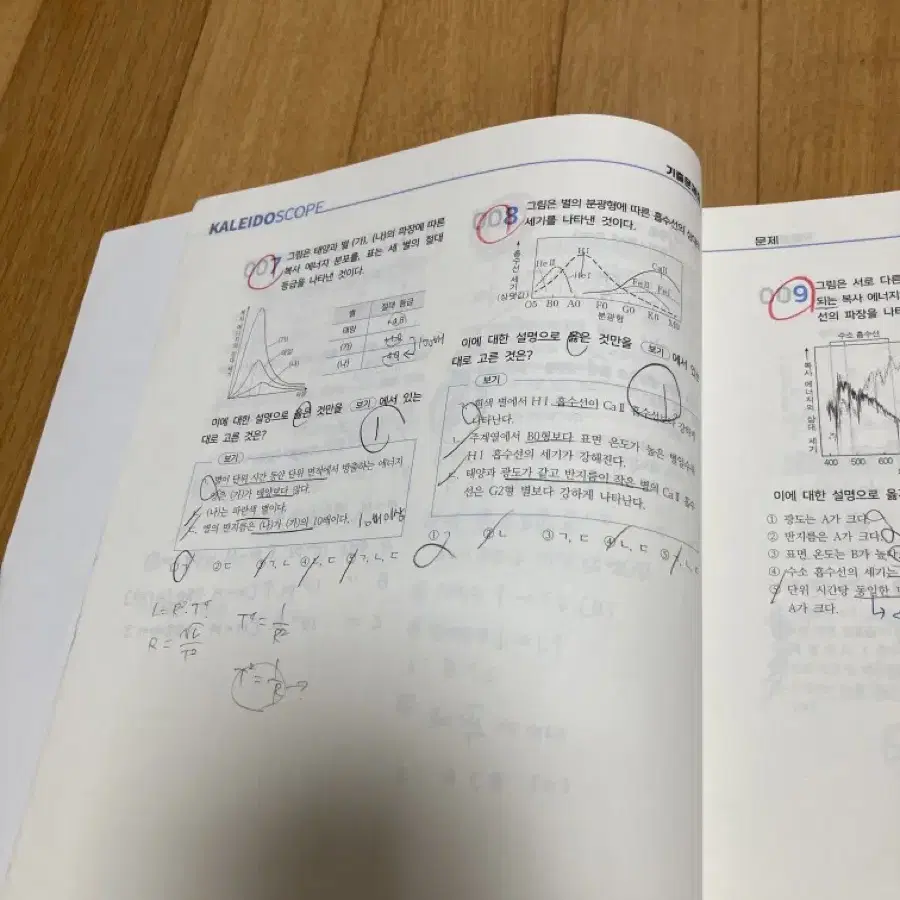 KALEIDOSCOPE
007
그림은 태양과 별 (가), (나)의 파장에 따른
복사 에너지 분포를, 표는 세 별의 절대
등급을 나타낸 것이다.
(가)
태양
(나)
별 절대 등급
태양 +4.8
(가)
(나)
100배
이에 대한 설명으로 옳은 것만을 보기 에서 있는
대로 고른 것은?
1
보기
별이 단위 시간 동안 단위 면적에서 방출하는 에너지
양은 (가)가 태양보다 많다.
(나)는 파란색 별이다.
별의 반지름은 (나)가 (가)의 10배이다. 10배 이상
① ㄱ ② ㄷ ③ ㄱ, ㄴ ④ ㄴ, ㄷ ⑤ ㄱ, ㄴ, ㄷ
L = R² · T⁴
R = √L / T²
T⁴ = 1 / R²
T² = 1 / R →
기출문제
008
그림은 별의 분광형에 따른 흡수선의 상대
세기를 나타낸 것이다.
흡수선 세기 (상댓값)
HeⅡ
HⅠ
HeⅠ
CaⅡ
FeⅡ FeⅠ
O5 B0 A0 F0 G0 K0 M0
분광형
이에 대한 설명으로 옳은 것만을 보기 에서 있는
대로 고른 것은?
보기
1
흰색 별에서 HⅠ 흡수선이 CaⅡ 흡수선보다 강하게
나타난다.
주계열에서 B0형보다 표면 온도가 높은 별일수록
HⅠ 흡수선의 세기가 강해진다.
태양과 광도가 같고 반지름이 작은 별의 CaⅡ 흡수
선은 G2형 별보다 강하게 나타난다.
① ㄱ ② ㄴ ③ ㄱ, ㄷ ④ ㄴ, ㄷ ⑤ ㄱ, ㄴ, ㄷ
문제
009
그림은 서로 다른
되는 복사 에너지
선의 파장을 나타
수소 흡수선
복사 에너지의 상대 세기
400 500 600
이에 대한 설명으로 옳
① 광도는 A가 크다.
② 반지름은 A가 크다.
③ 표면 온도는 B가 높다
④ 수소 흡수선의 세기는
⑤ 단위 시간당 동일한
A가 크다.